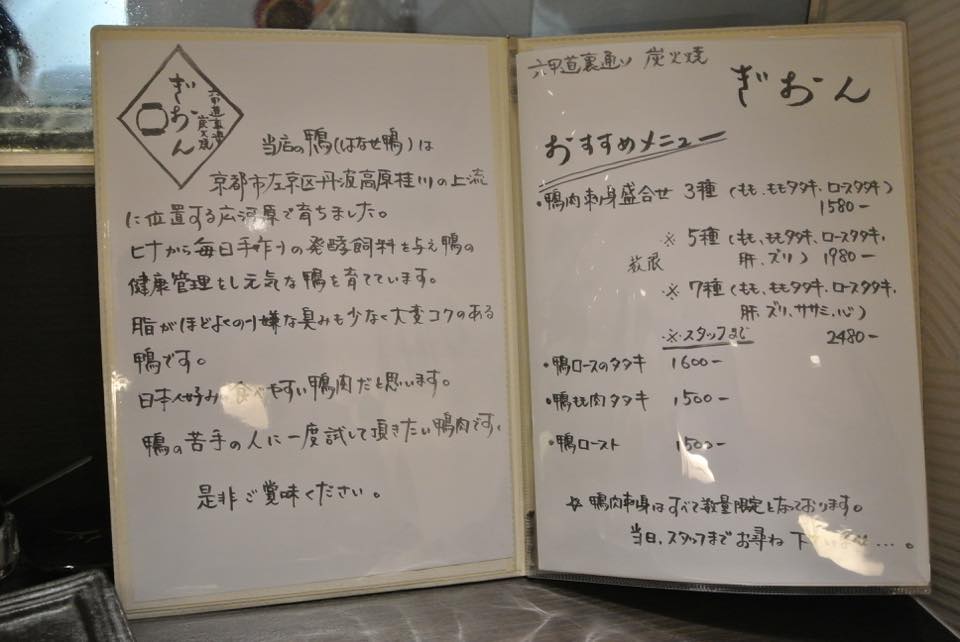 六甲道裏通り
炭火焼
ぎおん
当店の鴨(はなせ鴨)は
京都市左京区丹波高原桂川の上流
に位置する広河原で育ちました。
ヒナから毎日手作りの発酵飼料を与え鴨の
健康管理をし元気な鴨を育てています。
脂がほどよくのり嫌な臭みも少なく大変コクのある
鴨です。
日本人好みの食べやすい鴨肉だと思います。
鴨の苦手の人に一度試して頂きたい鴨肉です。
是非ご賞味ください。
六甲道裏通り 炭火焼
ぎおん
おすすめメニュー
・鴨肉刺身盛合せ 3種(もも、ももタタキ、ロースタタキ)
1580-
※ 5種(もも、ももタタキ、ロースタタキ、
肝、ズリ) 1980-
※ 7種(もも、ももタタキ、ロースタタキ、
肝、ズリ、ササミ、心)
※スタッフまで 2480-
・鴨ロースのタタキ 1600-
・鴨もも肉タタキ 1500-
・鴨ロースト 1500-
☆ 鴨肉刺身はすべて数量限定となっております。
当日、スタッフまでお尋ね下さいませ…。